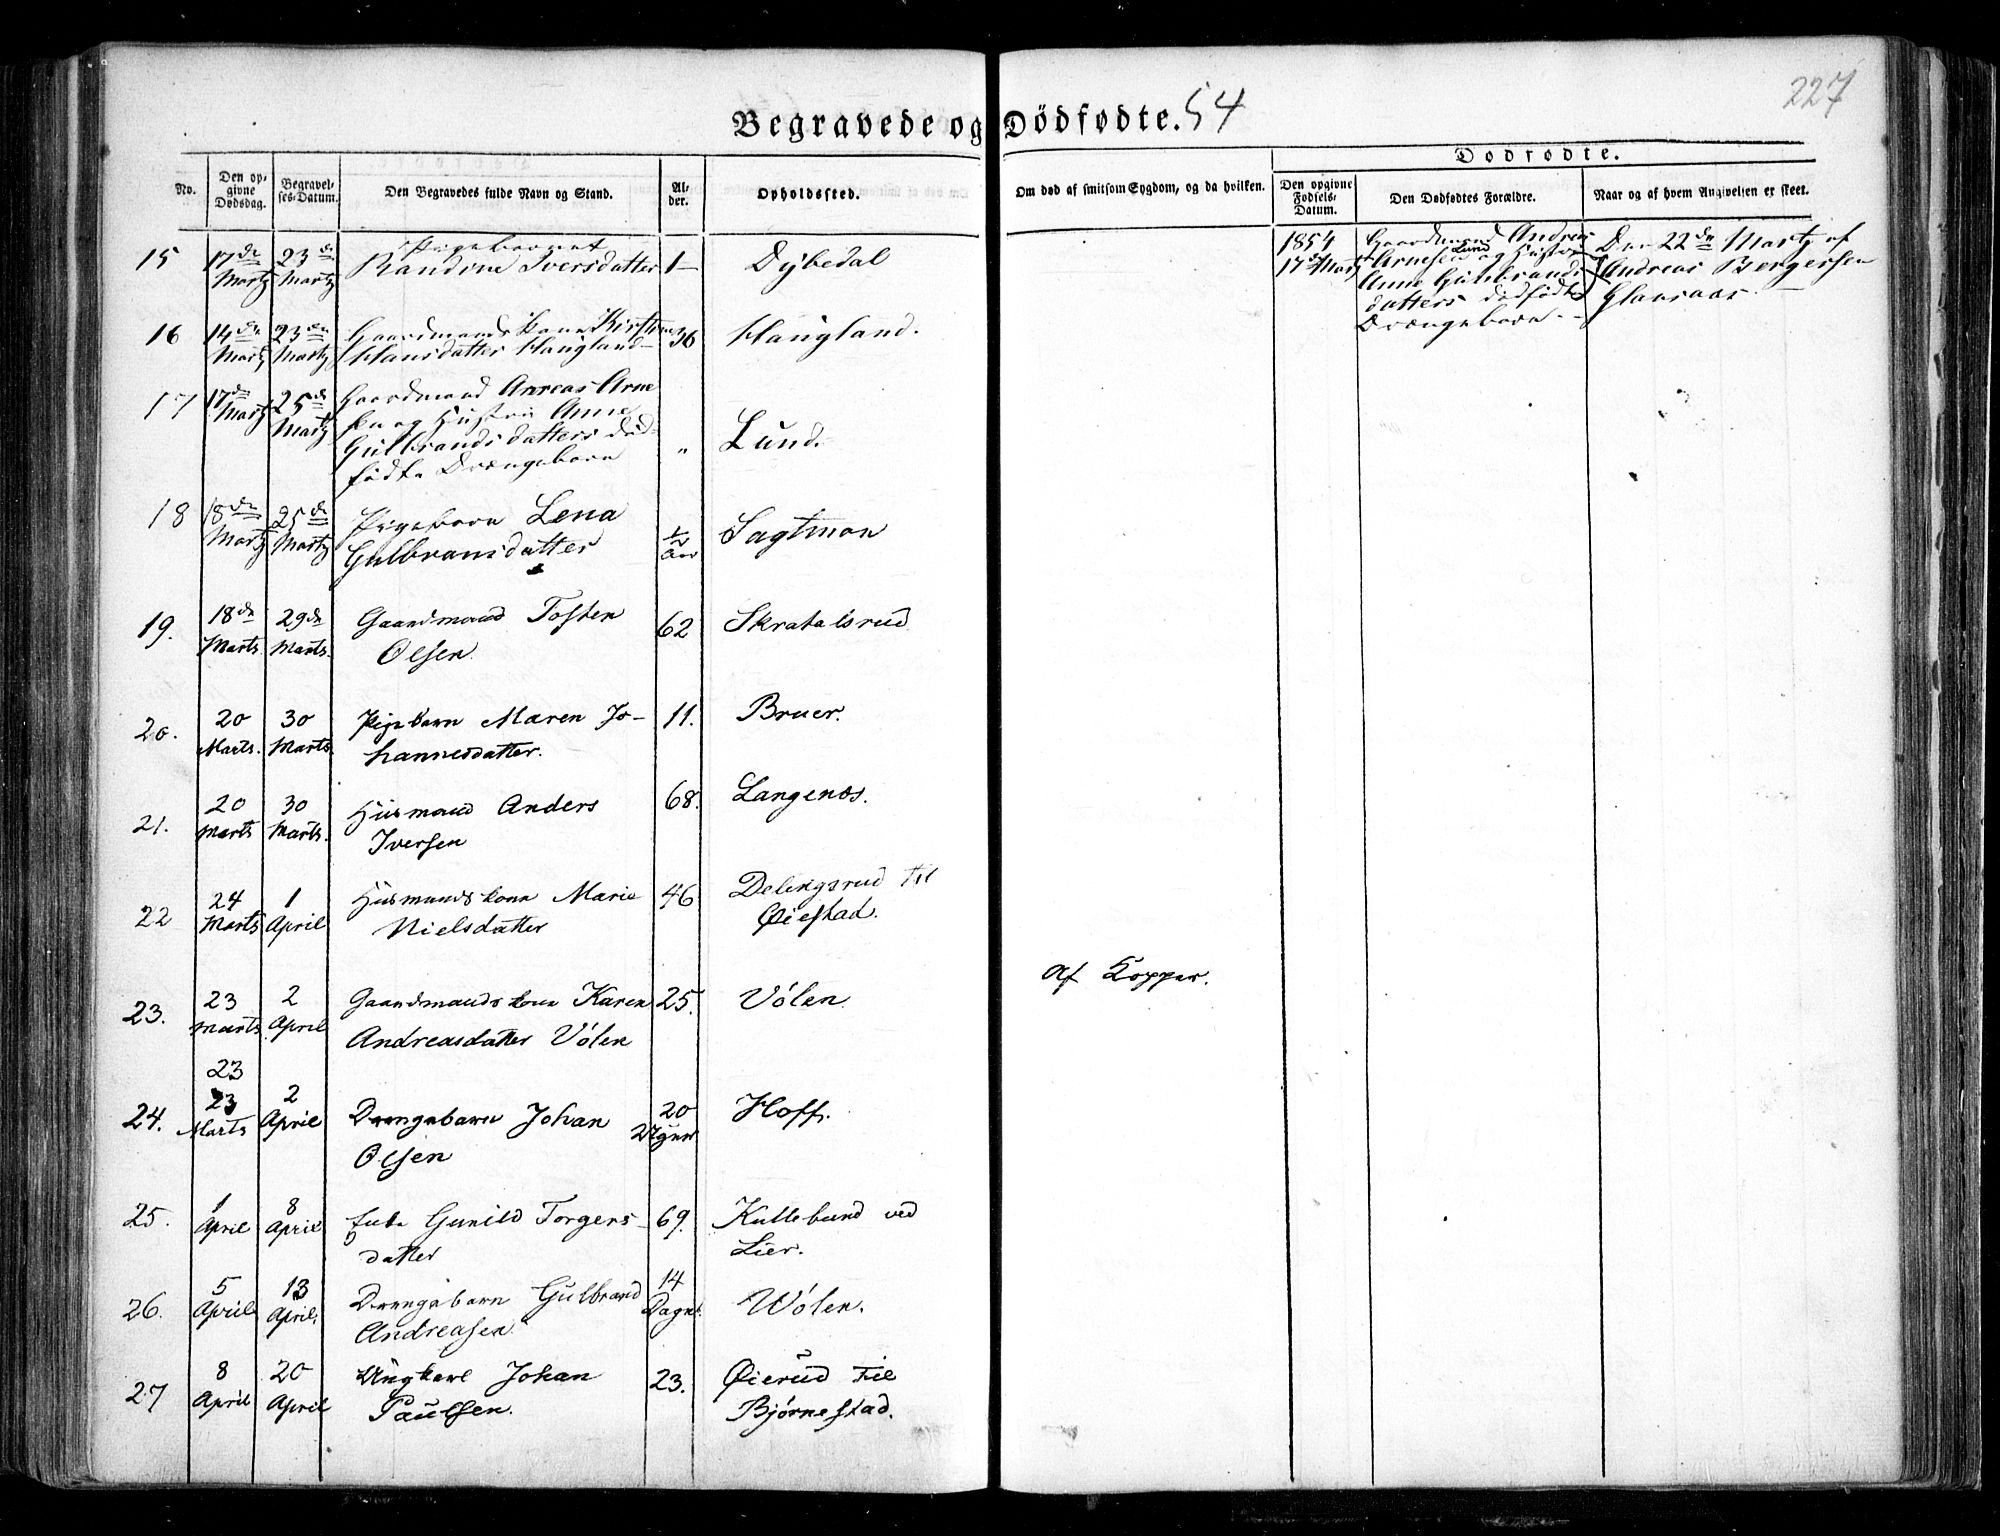 227
Begravede og Dödfødte. 54
Dødfødte.
No.
Den opgivne Dødsdag.
Begravelses-Datum.
Den Begravedes fulde Navn og Stand.
Alder.
Opholdssted.
Om død af smitsom Sygdom, og da hvilken.
Den opgivne Fødsels-Datum.
Den Dødfødtes Forældre.
Naar og af hvem Angivelsen er skeet.
15 17de Martz 23de Martz Pigebarnet
Randine Iversdatter 1 Dybedal
1854
17de Martz
Gaardmand Andreas
Arnesen Lund og Hustro
Anne Gulbrands
datters dødfødte
Drængebarn
Den 22de Martz af
Andreas Bergersen
Glaasaas
16 14de Martz 23de Martz Gaardmands Kone Kirstine
Hansdatter Haugland 36 Haugland.
17 17de Martz 25de Martz Gaardmand Anreas Arne
sen og Hustru Anne
Gulbrandsdatters død-
fødte Drængebarn " Lund.
18 18de Martz 25de Martz Pigebarn Lena
Gulbransdatter 1/2 Aar Sagtmon
19. 18de Marts. 29de Marts. Gaardmand Tosten
Olsen. 62 Skratalsrud
20. 20 Marts. 30 Marts. Pigebarn Maren Jo-
hannesdatter. 11. Bruer.
21. 20 Marts 30 Marts. Huusmand Anders
Iversen 68. Langenæs.
22 24 Marts 1 April Huusmandskone Marie
Nielsdatter 46 Delingsrud til
Øiestad.
23. 23 Marts 2 April Gaardmands kone Karen
Andreasdatter Vólen 25. Vólen
Af Kopper.
23
24. 23 Marts 2 April Drengebarn Johan
Olsen 20 Hoff.
25. 1 April 8 April Enke Gunild Torgers-
datter 69. Kullebund ved
Lier.
26. 5 April 13 April. Drengebarn Gulbrand
Andreasen. 14 Dage Wólen.
27 8 April 20 April Ungkarl Johan
Paulsen. 23. Øierud til
Bjørnestad.